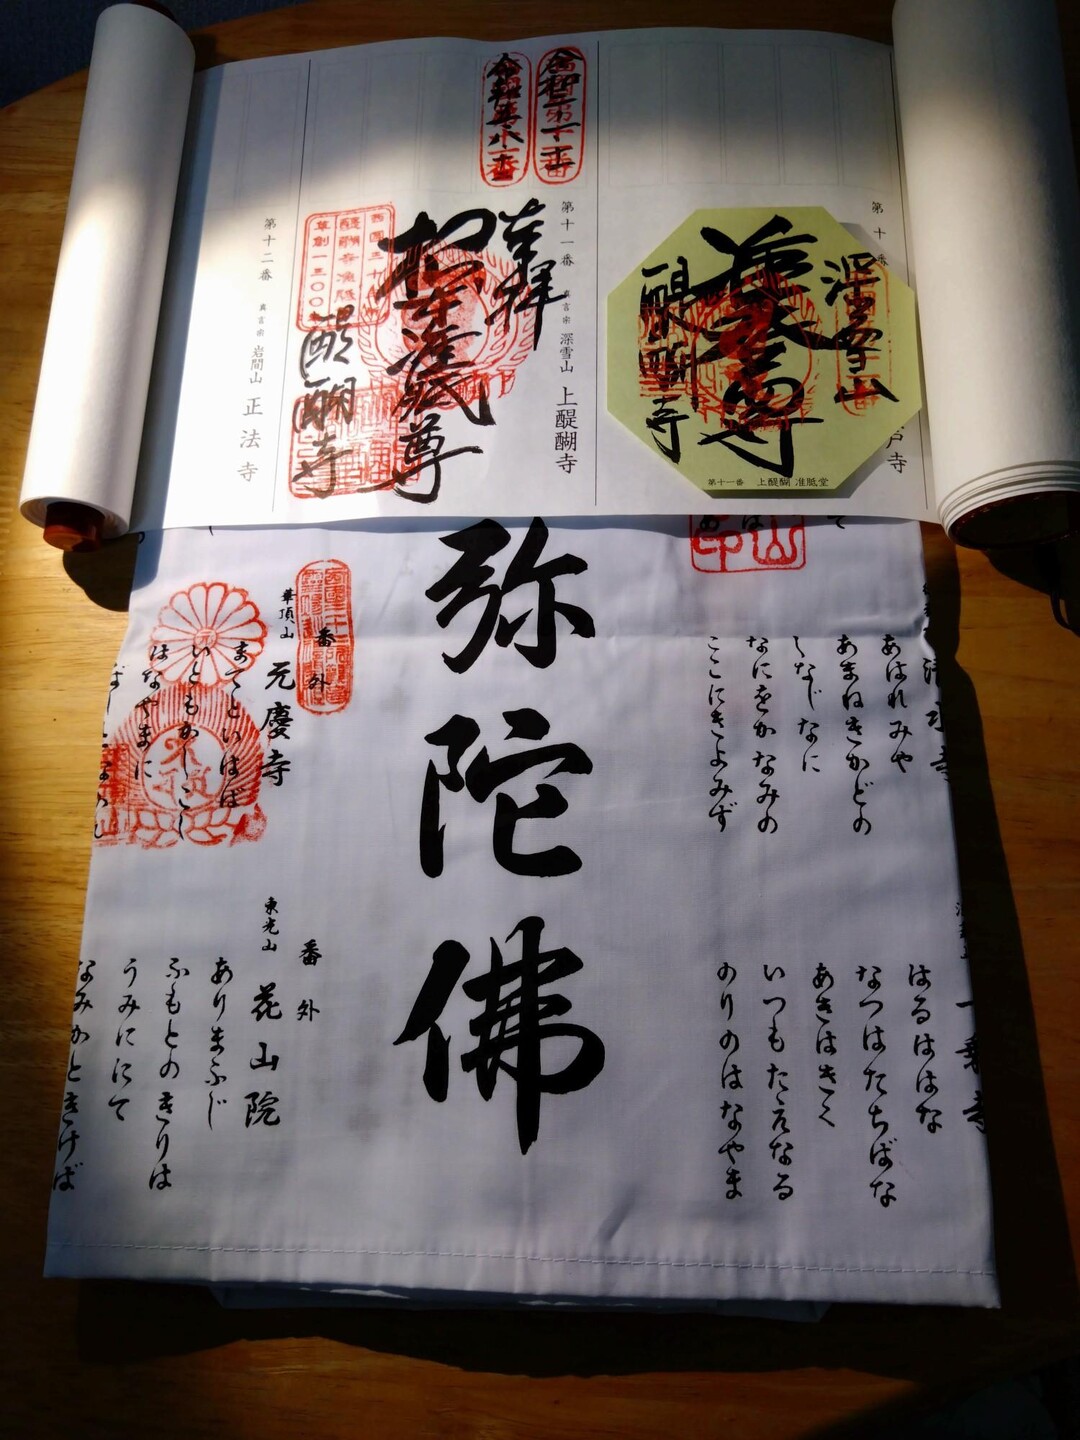 第十番
戸寺
深雪山
准胝尊
醍醐寺
第十一番 上醍醐 准胝堂
第十一番 真言宗 深雪山 上醍醐寺
奉拝
准胝尊
醍醐寺
西国三十
草創一三〇〇
第十二番 真言宗 岩間山 正法寺
弥陀佛
あはれみや
あまねきかどの
しなじなに
なにをかなみの
ここにきよみず
番外
華頂山 元慶寺
まてといはば
いともかしこし
はなやまに
一乗寺
はるははな
なつはたちばな
あきはきく
いつもたえなる
のりのはなやま
番外
東光山 花山院
ありまふじ
ふもとのきりは
うみににて
なみかときけば